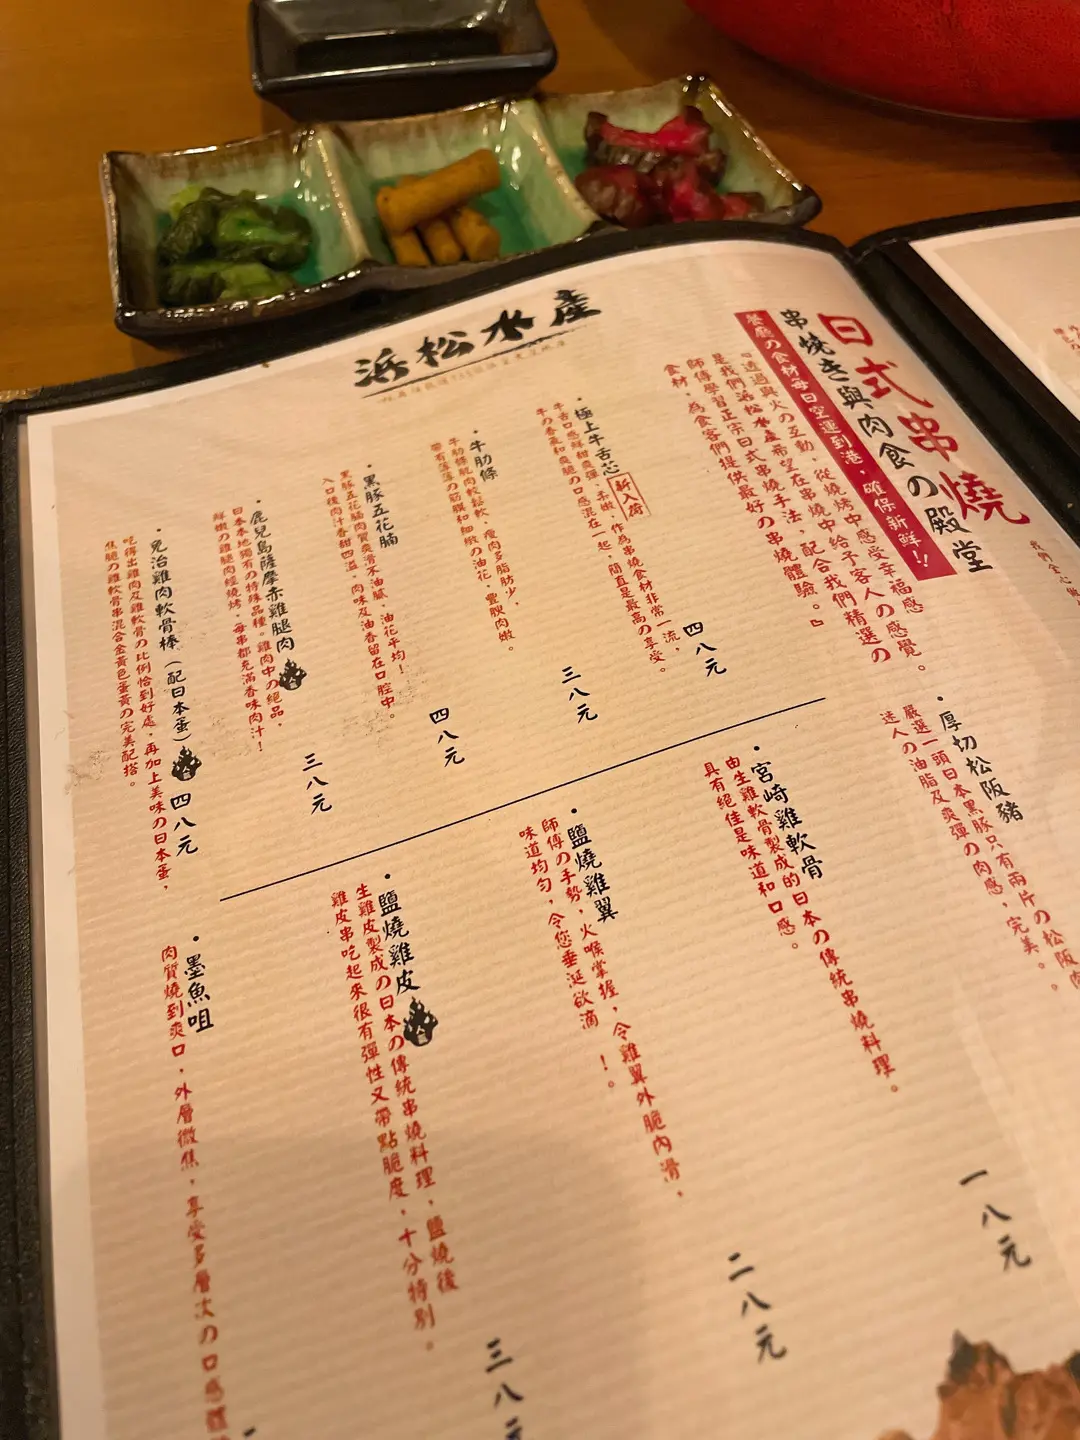 浜松水產
日式串燒
串燒き與肉食の殿堂
餐廳の食材每日空運到港，確保新鮮!!
透過與火の互動，從燒烤中感受幸福感
是我們浜松水產希望在串燒中給予客人の感覺。
師傅學習正宗日式串燒手法，配合我們精選の
食材，為食客們提供最好の串燒體驗。』
我們全心
・極上牛舌芯 新入荷
牛舌口感鮮甜爽彈，柔嫩，作為串燒食材非常一流，
牛の香氣和爽脆の口感混在一起，簡直是最高の享受。
四八元
・牛肋條
牛肋條肌肉較鬆軟，瘦肉多脂肪少，
帶有薄薄の筋膜和細緻の油花，豐腴肉嫩。
三八元
・黑豚五花腩
黑豚五花腩肉質爽滑不油膩，油花平均！
入口後肉汁香甜四溢，肉味及油香留在口腔中。
四八元
・鹿兒島薩摩赤雞腿肉
日本本地獨有の特殊品種。雞肉中の絕品，
鮮嫩の雞腿肉經燒烤，每串都充滿香味肉汁！
三八元
・免治雞肉軟骨棒（配日本蛋）
吃得出雞肉及雞軟骨の比例恰到好處，再加上美味の日本蛋，
焦脆の雞軟骨串混合金黃色蛋黃の完美配搭。
四八元
・厚切松阪豬
嚴選一頭日本黑豚只有兩片の松阪肉
迷人の油脂及爽彈の肉感，完美。
・宮崎雞軟骨
由生雞軟骨製成的日本の傳統串燒料理。
具有絕佳是味道和口感。
一八元
・鹽燒雞翼
師傅の手勢，火喉掌握，令雞翼外脆內滑，
味道均勻，令您垂涎欲滴 ！。
二八元
・鹽燒雞皮
生雞皮製成の日本の傳統串燒料理，鹽燒後
雞皮串吃起來很有彈性又帶點脆度，十分特別。
三八元
・墨魚咀
肉質燒到爽口，外層微焦，享受多層次の口感體